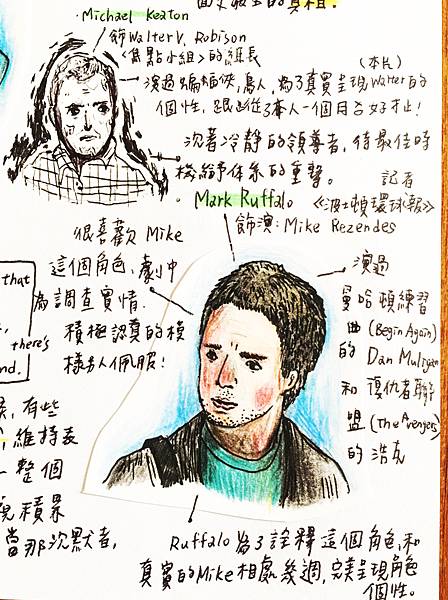 的真相.
Michael Keaton
飾 Walter V. Robison
《焦點小組》的組長
(本片)
演過蝙蝠俠,鳥人,為了真實呈現Walter的
個性,本人一個月才止!
沉著冷静的領導者,待最佳時
機給予体系的重擊。
記者
Mark Ruffalo 《波士頓環球報》
飾演:Mike Rezendes
很喜歡 Mike
這個角色,劇中
為調查實情.
積極認真的模
樣另人佩服!
演過
曼哈頓練習
曲(Begin Again)
的 Dan Muligan
和 復仇者聯
盟(The Avengers)
的 浩克
that
there's
nd.
有些
,維持表
一整個
積累
當那次默者,
Ruffalo 為了詮釋這個角色,和
真實的Mike相處幾週,完美呈現角色
個性。